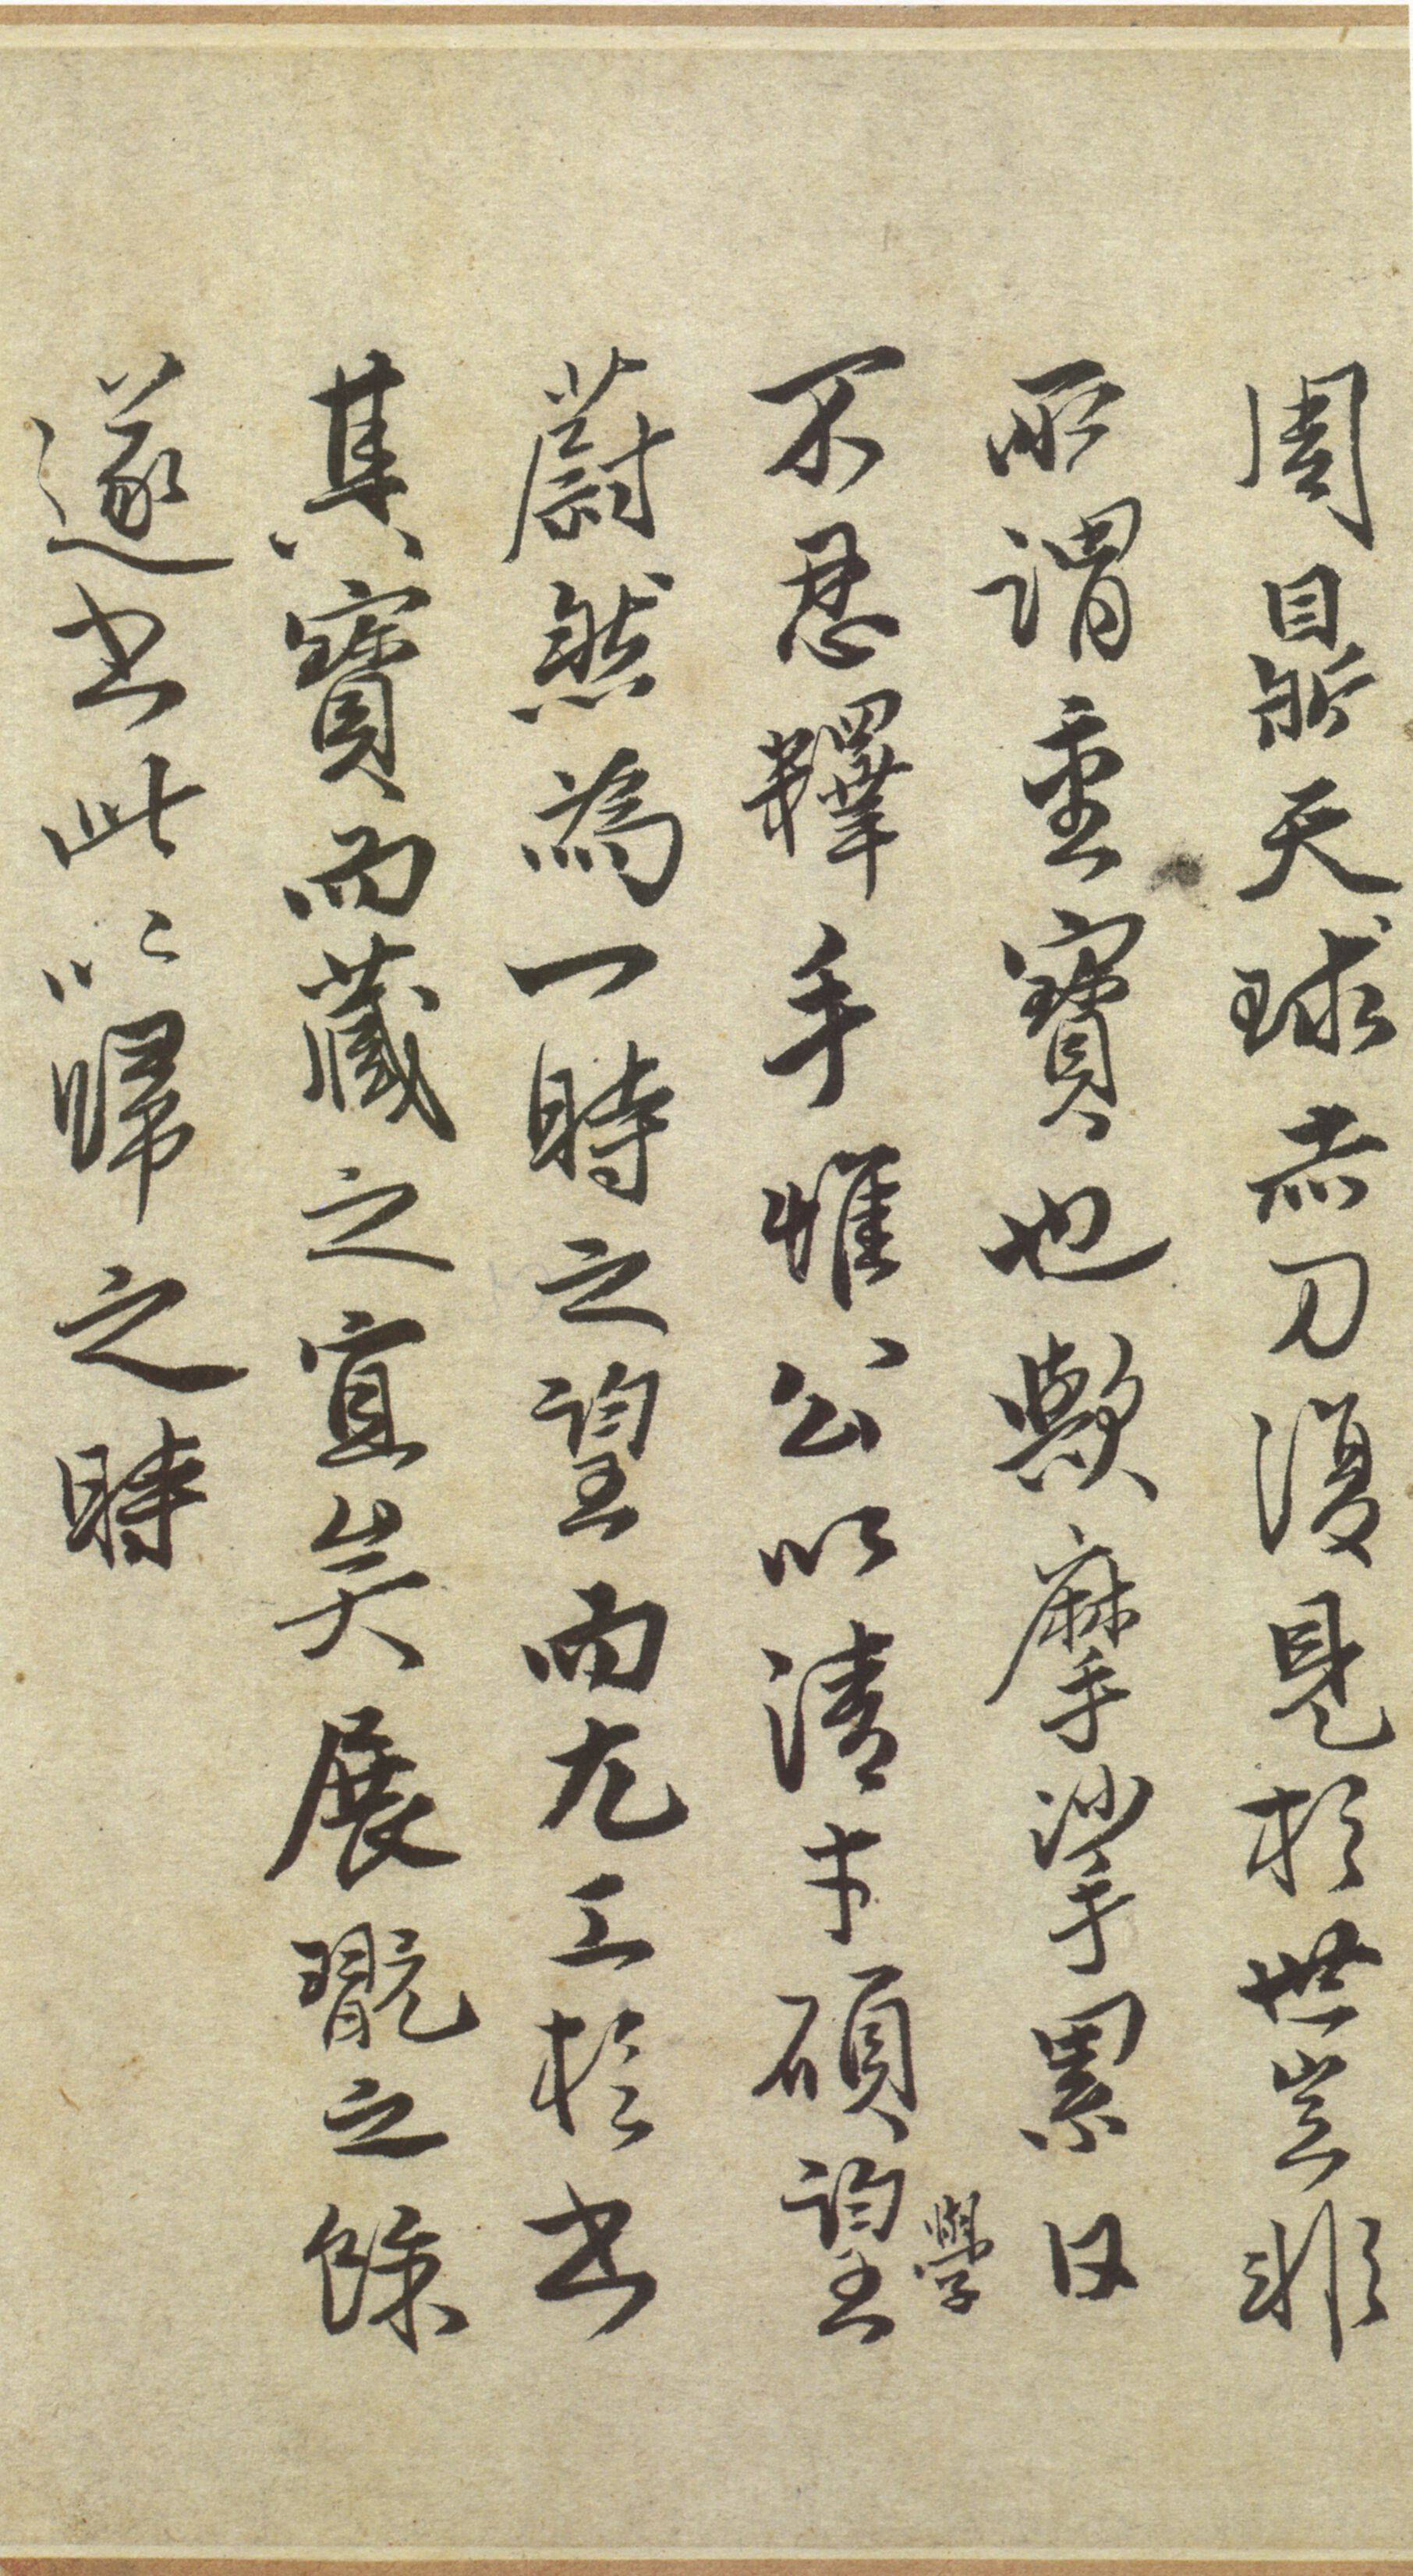 周鼎天球赤刀復見於世豈非
所謂重寶也歟摩挲累日
不忍釋手惟公以清才碩望學
蔚然為一時之望而尤工於書
其寶而藏之宜矣展翫之餘
遂書此以歸之時